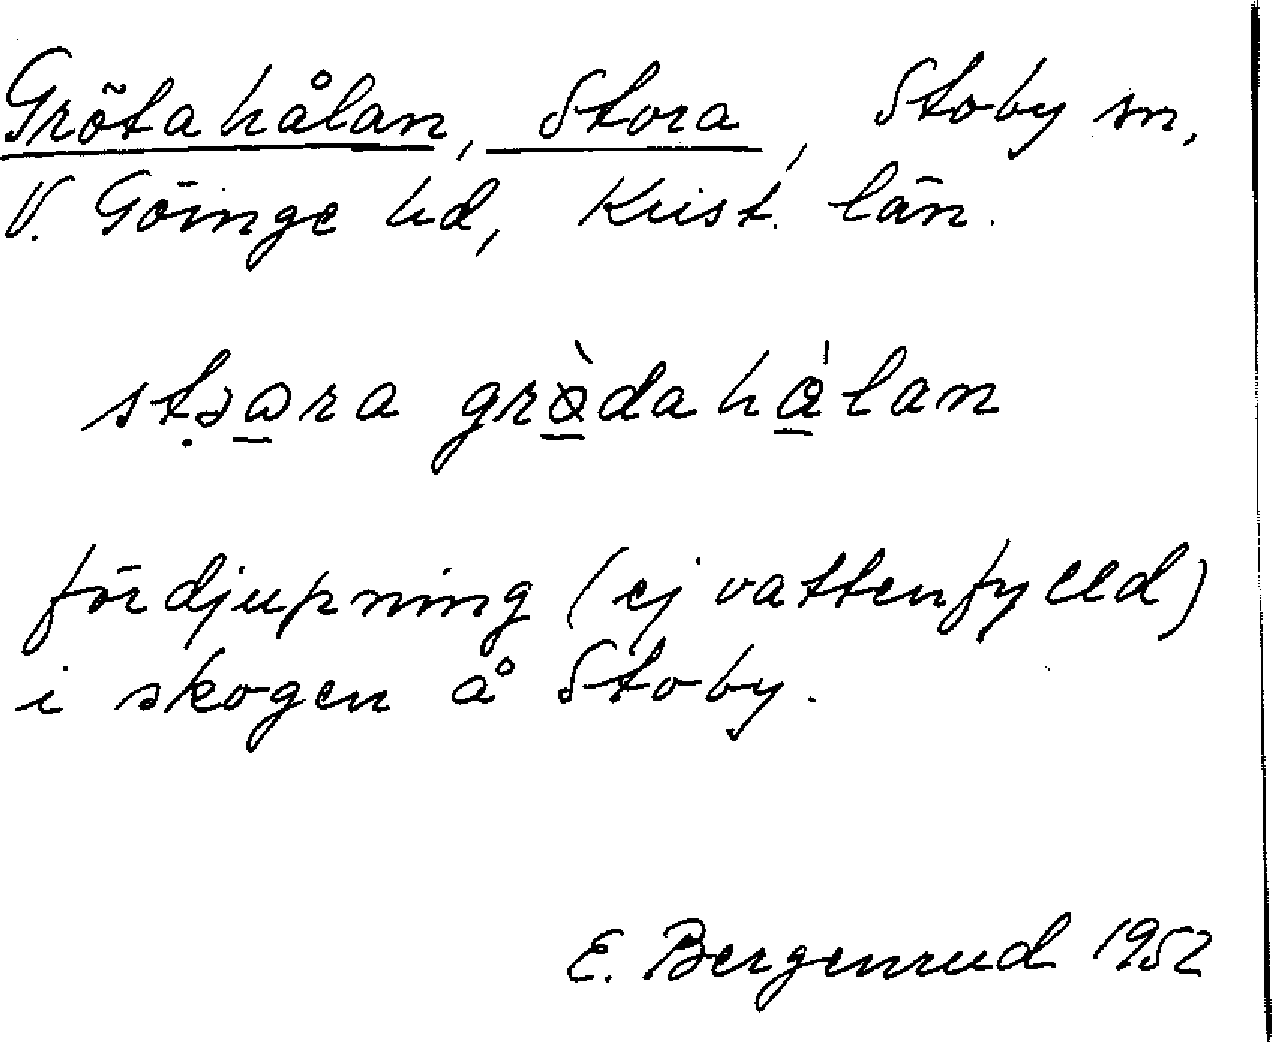 Grötahålan, Stora, Stoby sn,
V. Göinge hd, Krist. län.
stə̣ɷ̱ra grɵ̱̀dahɑ̱́lan
fördjupning (ej vattenfylld)
i skogen å Stoby.
E. Bergenrud 1952